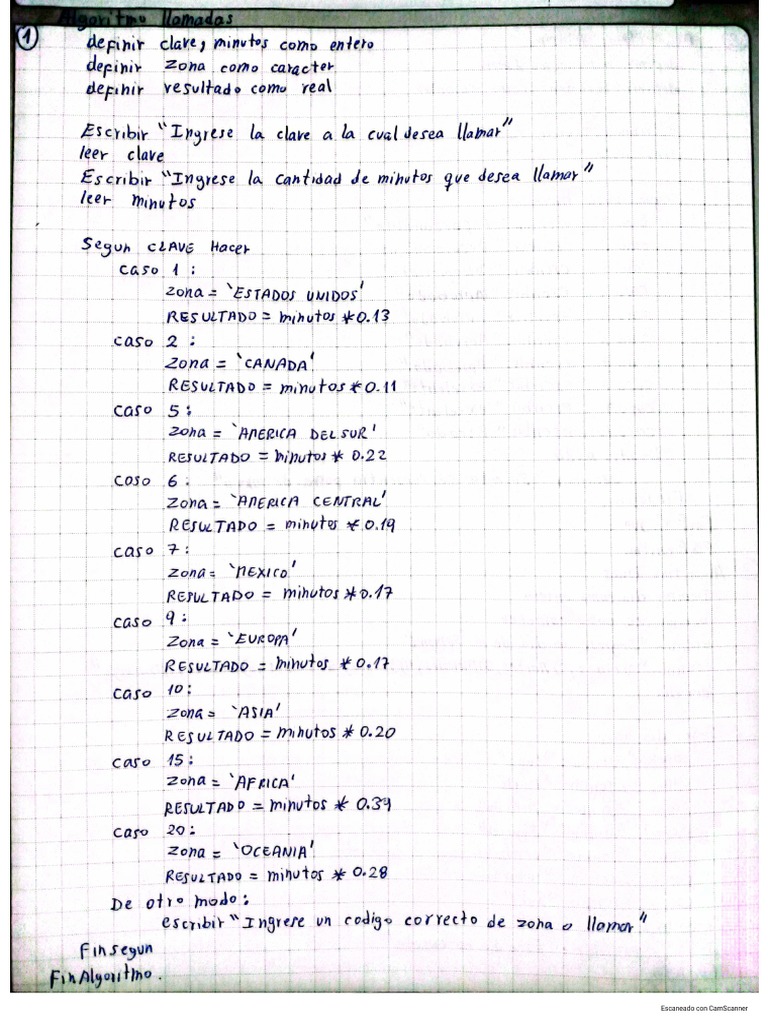 Algoritmo llamadas
1
definir clave, minutos como entero
definir zona como caracter
definir resultado como real
Escribir "Ingrese la clave a la cual desea llamar"
leer clave
Escribir "Ingrese la cantidad de minutos que desea llamar"
leer minutos
Segun CLAVE Hacer
caso 1:
zona = 'ESTADOS UNIDOS'
RESULTADO = minutos * 0.13
caso 2:
zona = 'CANADA'
RESULTADO = minutos * 0.11
caso 5:
zona = 'AMERICA DEL SUR'
RESULTADO = minutos * 0.22
caso 6:
zona = 'AMERICA CENTRAL'
RESULTADO = minutos * 0.19
caso 7:
zona = 'MEXICO'
RESULTADO = minutos * 0.17
caso 9:
zona = 'EUROPA'
RESULTADO = minutos * 0.17
caso 10:
zona = 'ASIA'
RESULTADO = minutos * 0.20
caso 15:
zona = 'AFRICA'
RESULTADO = minutos * 0.39
caso 20:
zona = 'OCEANIA'
RESULTADO = minutos * 0.28
De otro modo:
escribir "Ingrese un codigo correcto de zona a llamar"
Finsegun
FinAlgoritmo.
Escaneado con CamScanner